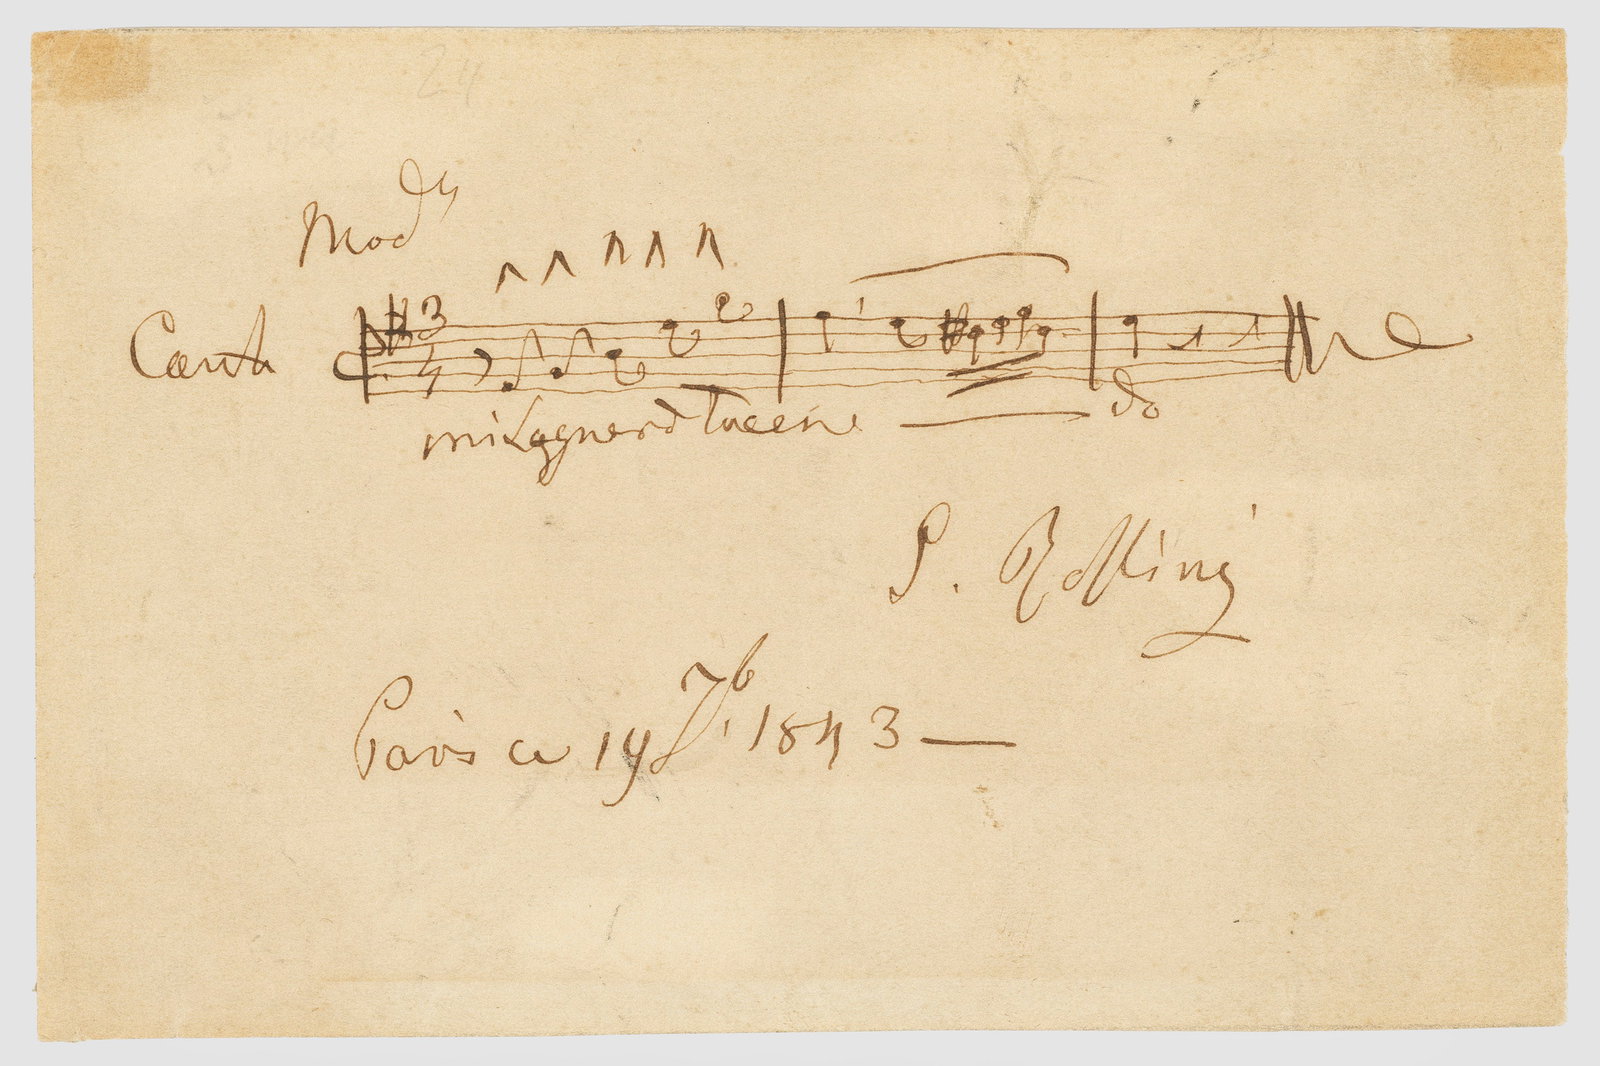 Mod.to
Canto
3
4
mi lagnerò tacen do
G. Rossini
Paris ce 19 7b. 1843